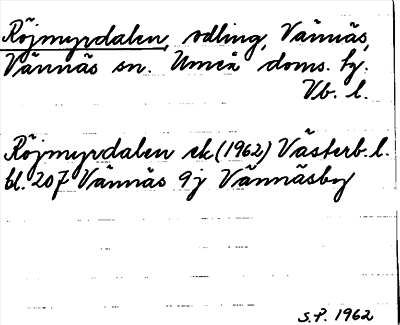 Röjmyrdalen, odling, Vännäs,
Vännäs sn. Umeå doms. hg.
Vb. l.
Röjmyrdalen ek (1962) Västerb. l.
bl. 207 Vännäs 9j Vännäsby
S.P. 1962